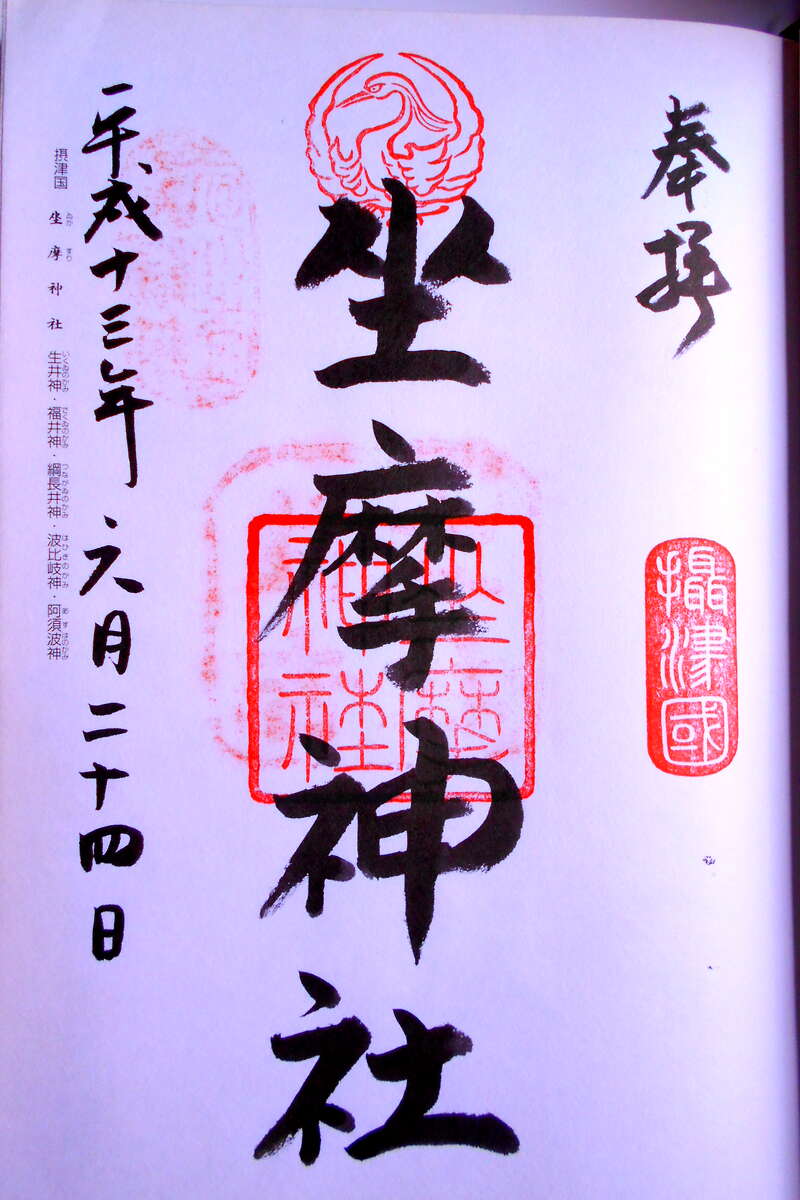 奉拝
攝津國
坐摩神社
坐摩神社
平成十三年六月二十四日
摂津国 坐摩神社 生井神・福井神・綱長井神・波比岐神・阿須波神
ゐかすり いくゐのかみ さくゐのかみ つながゐのかみ はひきのかみ あすはのかみ